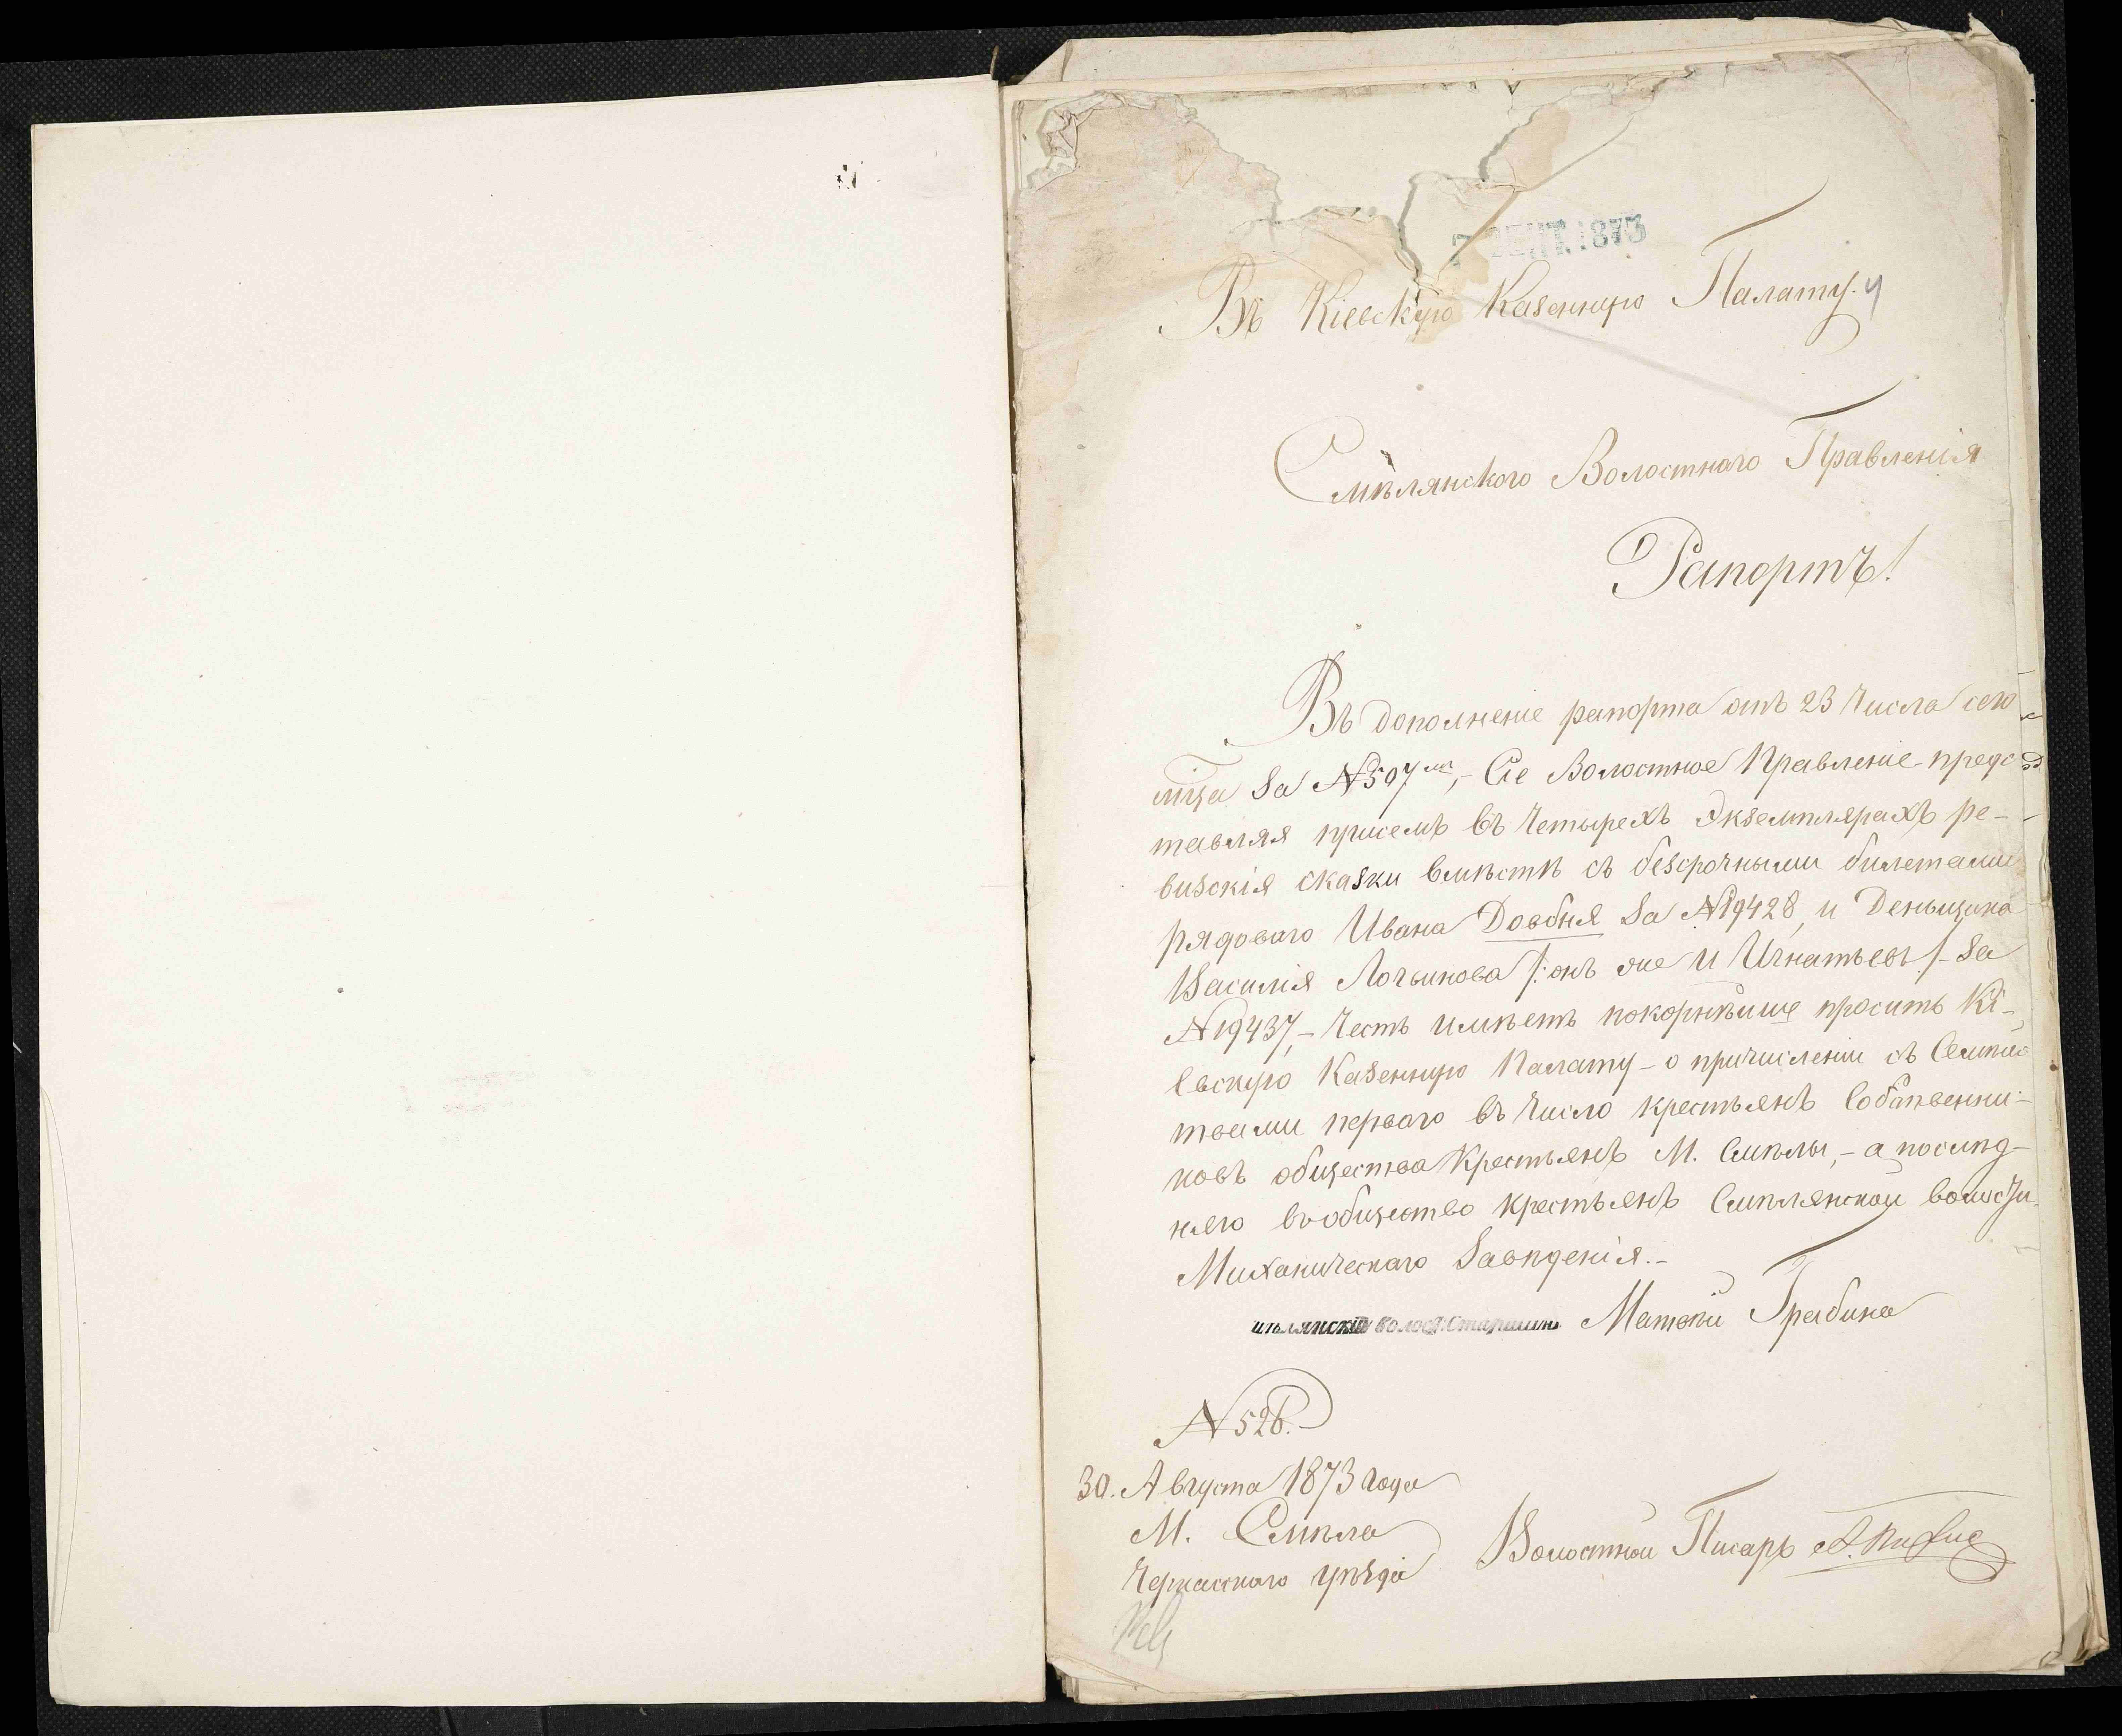 7 СЕНТ. 1873
Въ Кіевскую Казенную Палату.
Смѣлянского Волостнаго Правленія
Рапортъ!
Въ дополненіе рапорта отъ 23 числа сего
м҃ца за №507мъ,- Сіе Волостное Правленіе предс
тавляя присемъ въ четырехъ экземплярахъ ре-
визскія сказки вмѣстѣ съ безсрочными билетами
рядоваго Ивана Довбня за №19428, и Деньщика
Василія Логвинова /: онъ же и Игнатьевъ /- за
№19437,- честь имѣетъ покорнѣише просить Кі-
евскую Казенную Палату - о причисленіи съ Семѣйс
твами перваго въ число крестьянъ собственни-
ковъ общества Крестьянъ М. Смѣлы,- а послѣд-
няго вообщество крестьянъ Смѣлянской волости
Миханическаго Заведенія.-
мѣлянскій Волост. Старшина Матвѣй Грабина
№ 526.
30. Августа 1873 года
М. Смѣла
Черкасскаго уѣзда
Волостной Писарь